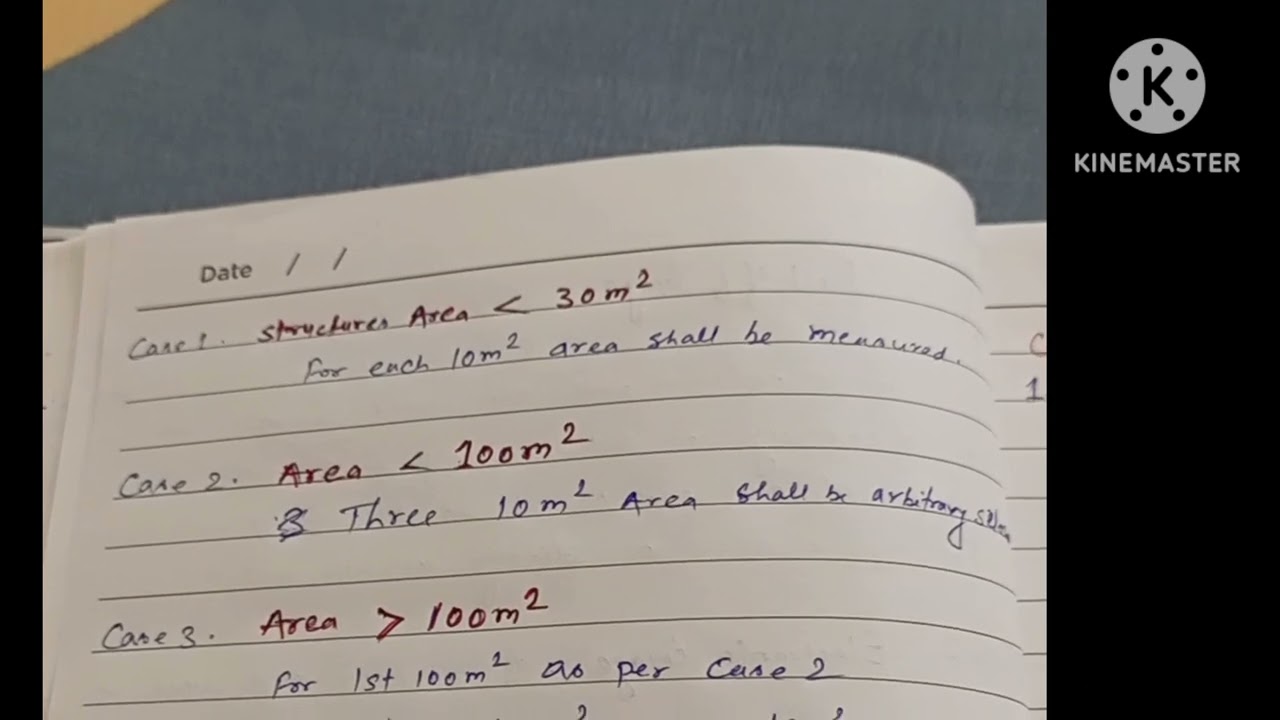 KINEMASTER
Date / /
Case 1. Structures Area < 30m²
For each 10m² area shall be measured.
Case 2. Area < 100m²
Three 10m² Area Shall be arbitrary
Case 3. Area > 100m²
for 1st 100m² as per Case 2
C
1